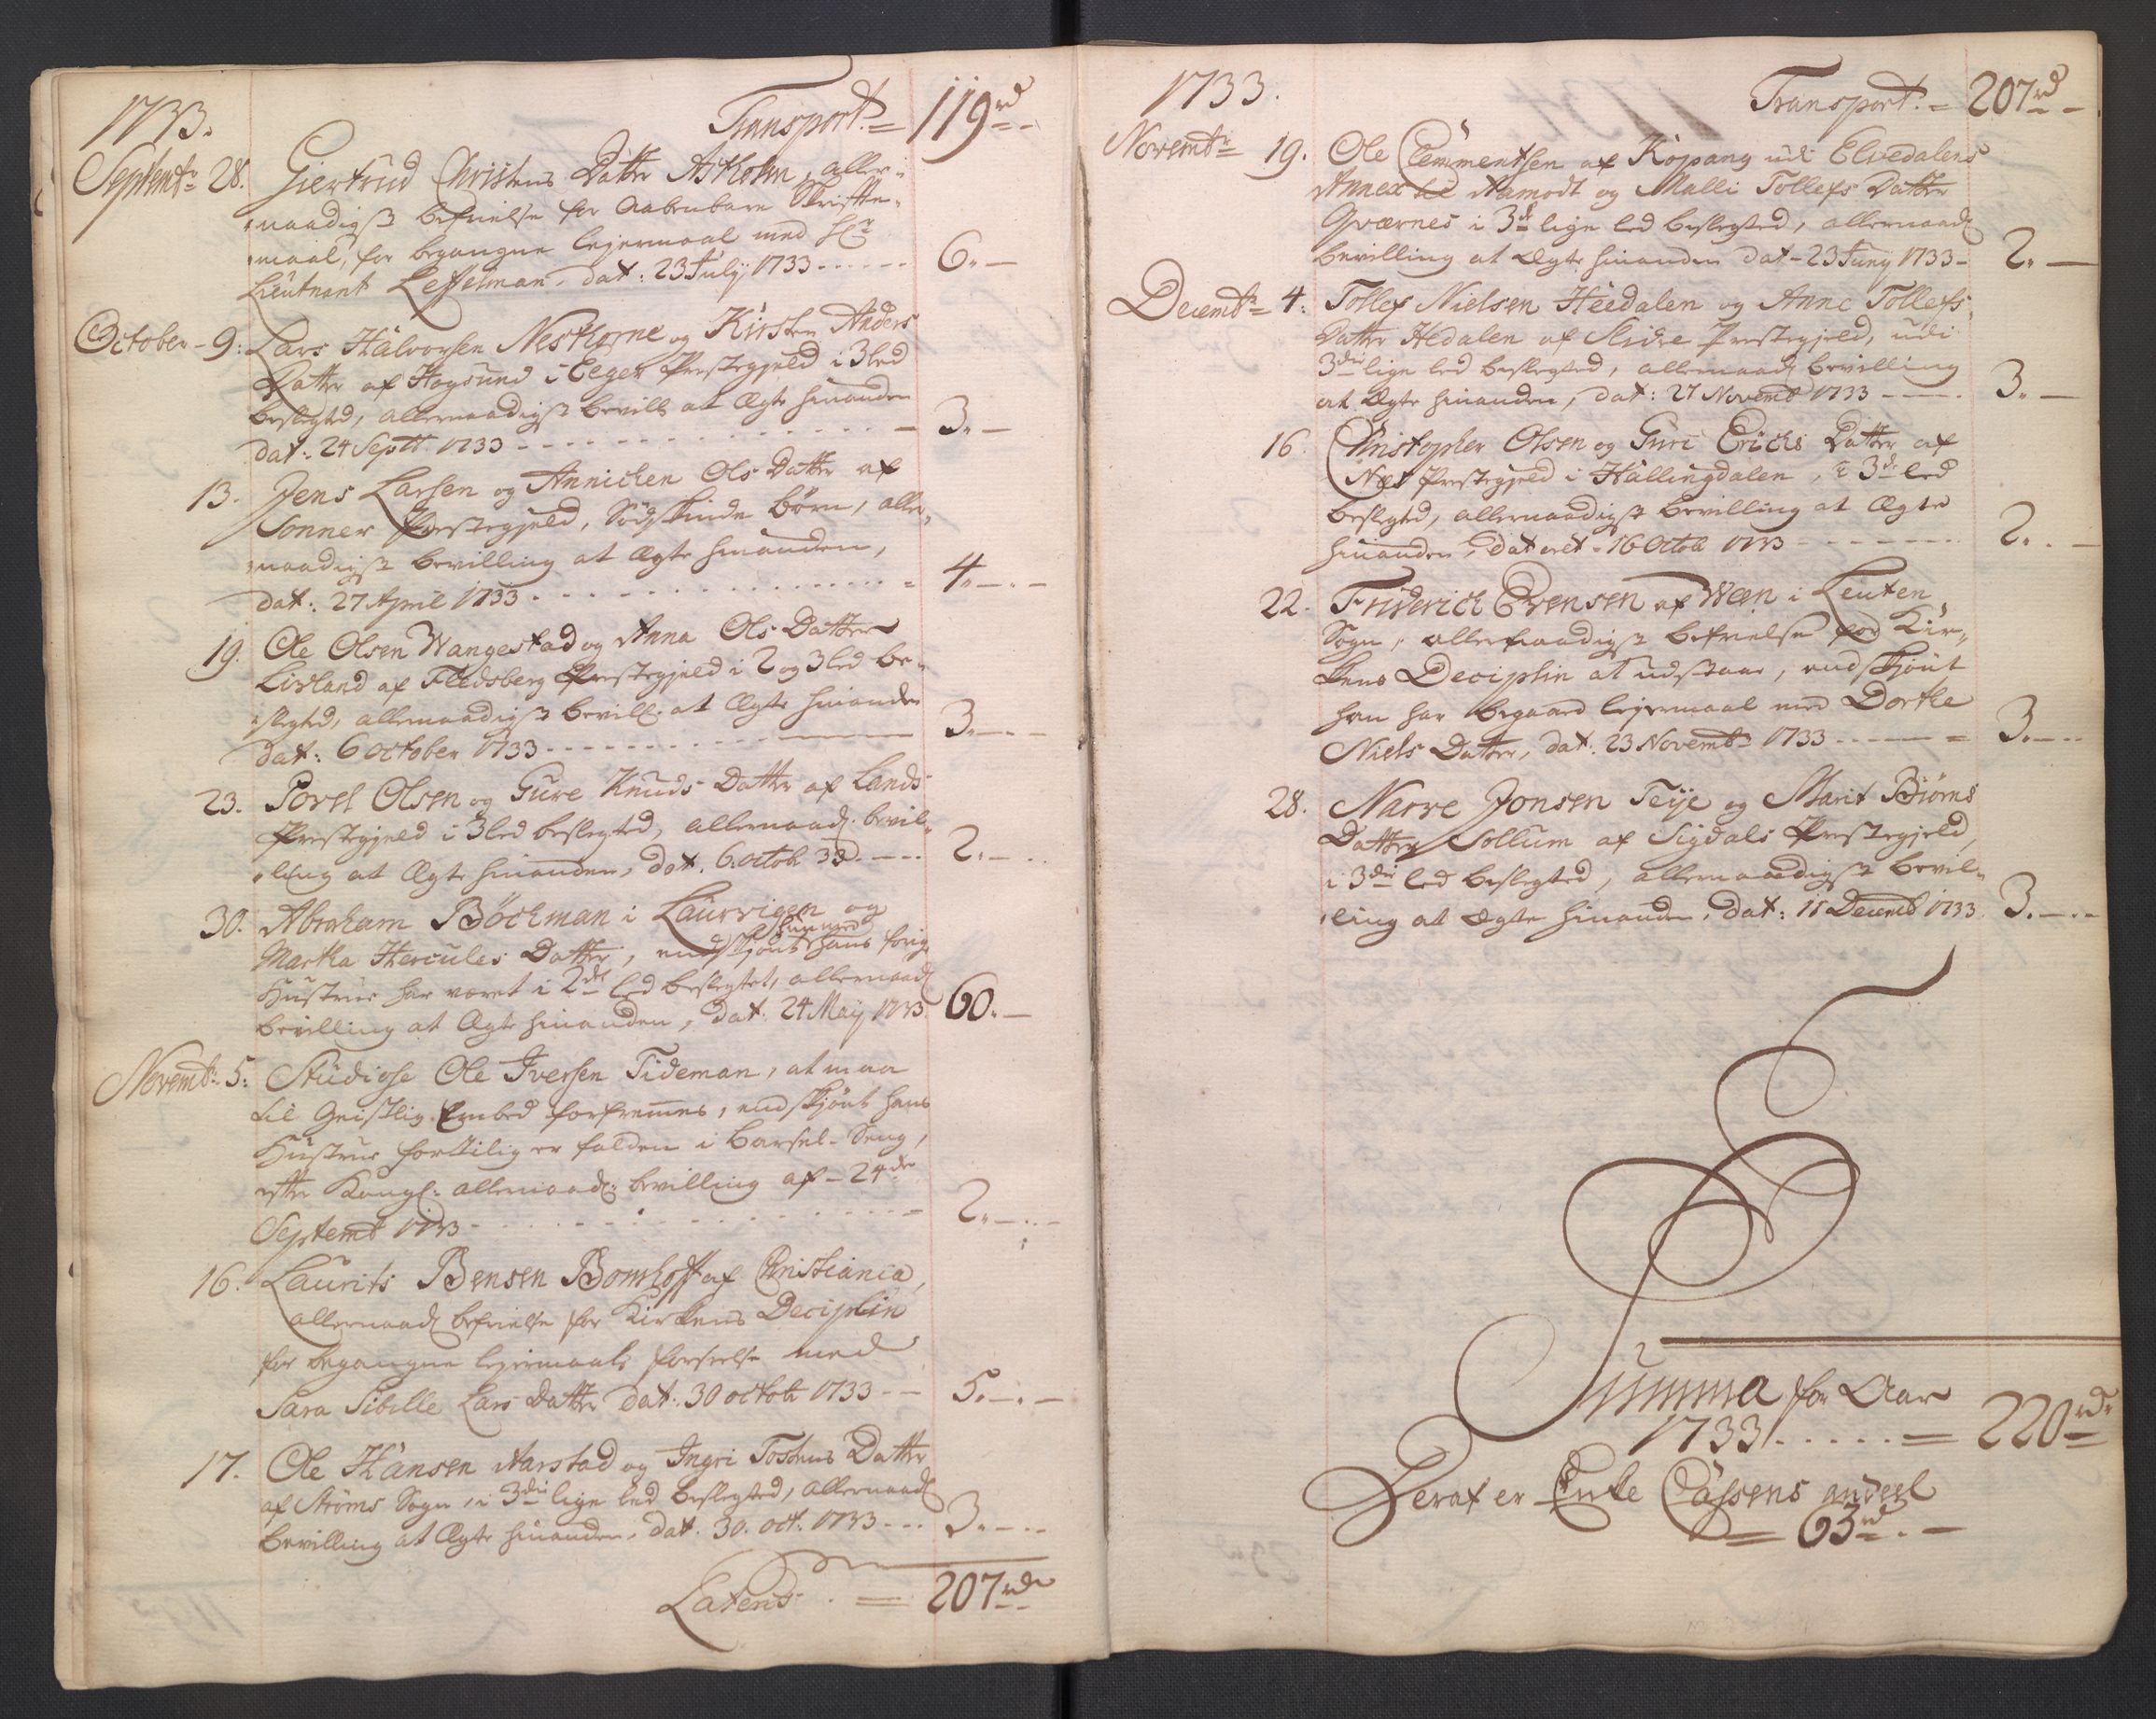 1733. Transport. = 119 rd
Septembr 28. Giertrud Christens Datter Astholm, aller-
naadigst befrielse for Aabenbare Skrifte-
maal, for begangne leyermaal med Hr
Lieutnant Leffelman, dat: 23 July 1733 ------ 6.-
October - 9: Lars Halvorsen Nesthorne og Kirsten Anders
Datter af Hogsund i Eeger Præstegield i 3 led
beslegted, allernaadigst bevill at Ægte hinanden
dat: 24 Septt 1733 ------ 3.-
13. Jens Larsen og Annichen Ols Datter af
Sonner Præstegield, Södskinde börn, aller-
naadigst bevilling at Ægte hinanden,
dat: 27 April 1733 ------ 4.-
19. Ole Olsen Wangestad og Anna Ols Datter
Lisland af Fledsberg Præstegield i 2 og 3 led be-
slegted, allernaadigst bevill: at Ægte hinanden
dat: 6 october 1733 ------ 3.-
23. Povel Olsen og Gure Knuds Datter af Lands
Præstegield i 3 led beslegted, allernaad: bevil-
ling at Ægte hinanden, dat. 6. octob 33 ---- 2.-
30. Abraham Böchman i Laurvigen og
hun med
Martha Hercules Datter, endskiönt hans forige
Hustrue har været i 2det led beslegtet, allernaad:
bevilling at Ægte hinanden, dat: 24 Maij 1733 60.-
Novembr. 5: Studiose Ole Iversen Tideman, at maa
til Geistlig Embed forfremmes, endskiönt hans
Hustrue forttilig er falden i Barsel-Seng,
efter Kongl: allernaad: bevilling af - 24de
Septemb 1733 ------ 2.-
16. Laurits Bensen Bomhoff af Christiania,
allernaad: befrielse for Kirkens Deciplin
for begangne leyermaals forseelse med
Sara Sibille Lars Datter dat: 30 octob 1733 -- 5.-
17. Ole Hansen Aarstad og Ingri Tostens Datter
af Ströms Sogn, i 3die lige led beslegted, allernaad:
bevilling at Ægte hinanden, dat. 30. oct. 1733 --- 3.-
Laterid: = 207 rd
1733. Transport. = 207 rd
Novembr 19. Ole Clemmentsen af Kopang udi Elvedalens
Annex til Aamodt og Malli Tollefs Datter
Qværnes i 3de lige led beslegted, allernaad:
bevilling at Ægte hinanden dat - 23 Juny 1733 - 2.-
Decembr 4: Tollef Nielsen Heedalen og Anne Tollefs
Datter Hedalen af Slidre Præstegield, udi
3die lige led beslegted, allernaad: bevilling
at Ægte hinanden, dat: 27 Novemb 1733 ---- 3.-
16. Christopher Olsen og Guri Erichs Datter af
Næs Præstegield i Hallingdalen, i 3de led
beslegted, allernaadigst bevilling at Ægte
hinanden, dateret - 16 Octob 1733 ------ 2.-
22. Friderich Evensen af Ween i Leuten
Sogn, allernaadigst befrielse for Kir-
kens Deciplin at udstaae, endskiönt
han har begaaed leyermaal med Dorthe
Niels Datter, dat: 23 Novembr 1733 ------ 3.-
28. Narve Jonsen Teije og Marit Biörns
Datter Sollum af Sigdals Præstegield,
i 3die led beslegted, allernaadigst bevil-
ling at Ægte hinanden, dat: 11 Decemb 1733 3.-
Summa for Aar
1733 ..... = 220 rdr
Heraf er Enke Cassens andeel
= 63 rd. -